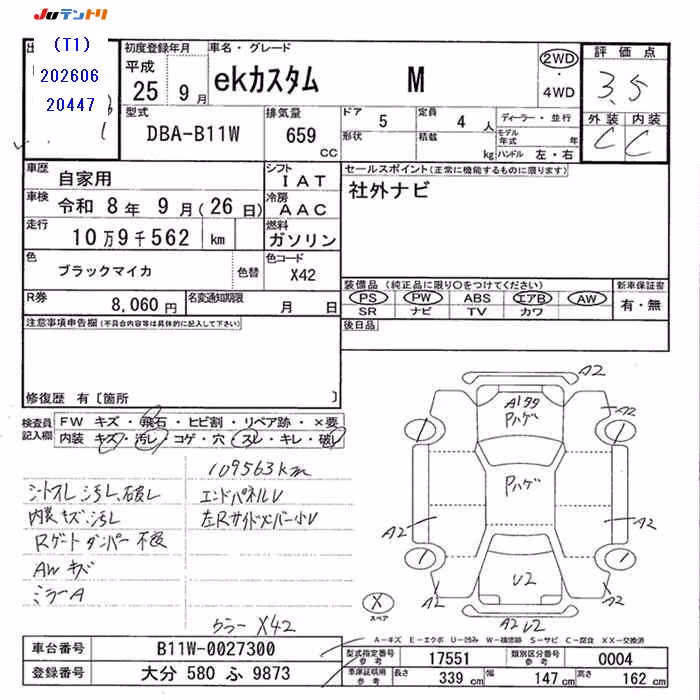 Juテントリ
(T1)
202606
20447
初度登録年月
平成
25 9月
車名・グレード
ekカスタム M
2WD
・
4WD
評価点
3.5
外装 内装
C C
型式
DBA-B11W
排気量
659
CC
ドア 5
形状
定員 4 人
積載 kg
ディーラー・並行
モデル年式 年
ハンドル 左・右
車歴
自家用
シフト
IAT
車検
令和 8年 9月(26日)
冷房
AAC
走行
10万9千562 km
燃料
ガソリン
色
ブラックマイカ
色替
色コード
X42
R券
8,060円
名変通知期限
月 日
セールスポイント(正常に機能するものに限ります)
社外ナビ
装備品(純正品に限り○をつけてください)
PS PW ABS エアB AW
SR ナビ TV カワ
新車保証書
有・無
後日品
注意事項申告欄(不具合内容等は具体的に記入して下さい)
修復歴 有〔箇所 〕
検査員
記入欄
FW キズ・飛石・ヒビ割・リペア跡・×要
内装 キズ・汚レ・コゲ・穴・スレ・キレ・破レ
109563km
シートスレ 汚レ、破レ
エンドパネルV
内装キズ、汚レ
左Rサイドメンバー小V
Rゲートダンパー不良
AWキズ
ミラーA
カラー X42
A2
A1タタ
Pハゲ
A2
Pハゲ
A2
A2
U2
A2
A2
A2 U2
X
スペア
A-キズ E-エクボ U-凹み W-補修跡 S-サビ C-腐食 XX-交換済
車台番号
B11W-0027300
登録番号
大分 580 ふ 9873
型式指定番号
参考
17551
類別区分番号
参考
0004
車庫証明用
参考
長さ
339 cm
幅
147 cm
高さ
162 cm